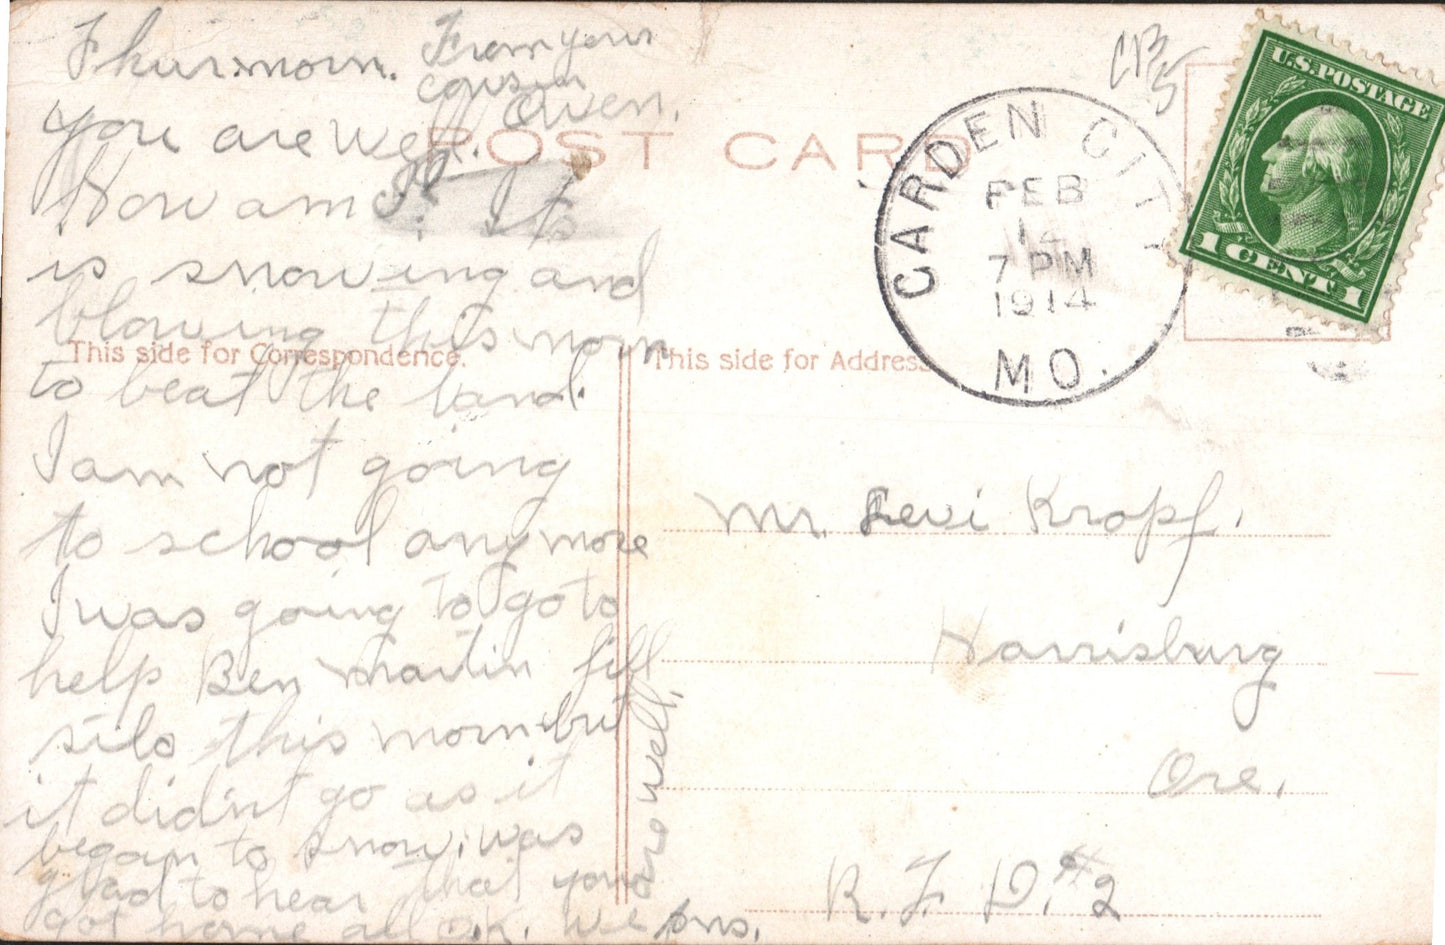 Thur. morn. From your
cousin
Owen.
you are well.
How am I? Its
is snowing and
blowing this morn
to beat the band.
I am not going
to school any more
I was going to go to
help Ben Martin fill
silo this morn but
it didn't go as it
began to snow. was
glad to hear that you
got home all o.k. we
are well.
ans.
POST CARD
This side for Correspondence.
This side for Address
GARDEN CITY
FEB
7 PM
1914
MO.
U.S. POSTAGE
1 CENT 1
Mr. Levi Kropf.
Harrisburg
Ore.
R. F. D. #2